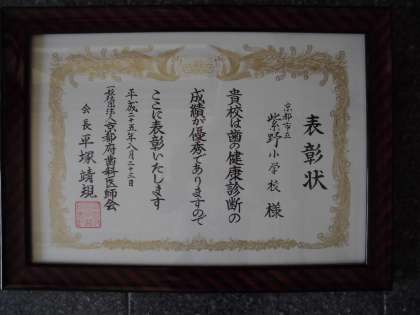 表彰状
京都市立
紫野小学校 様
貴校は歯の健康診断の
成績が優秀でありますので
ここに表彰いたします
平成二十五年八月二十三日
一般社団法人京都府歯科医師会
会長 平塚靖規